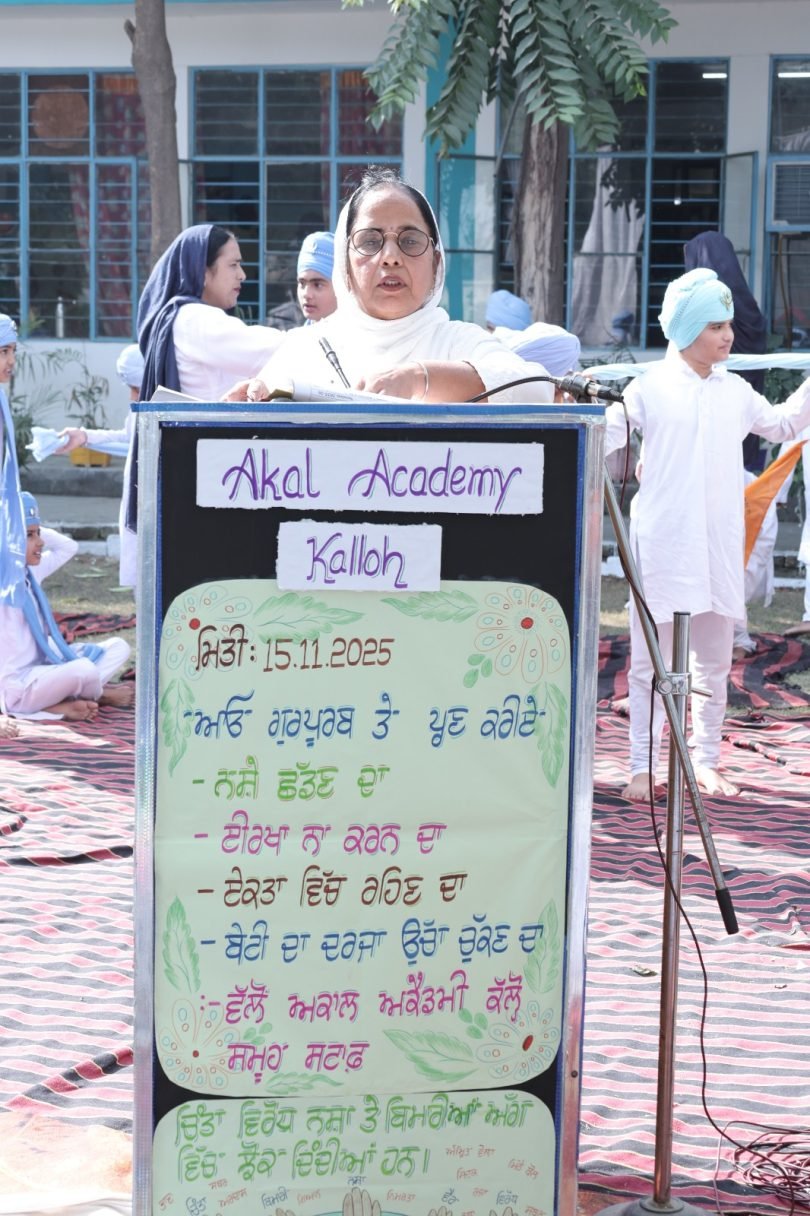 Akal Academy
Kalloh
ਮਿਤੀ: 15.11.2025
-ਆਓ ਗੁਰਪੁਰਬ ਤੇ ਪ੍ਰਣ ਕਰੀਏ-
- ਨਸ਼ੇ ਛੱਡਣ ਦਾ
- ਈਰਖਾ ਨਾ ਕਰਨ ਦਾ
- ਏਕਤਾ ਵਿੱਚ ਰਹਿਣ ਦਾ
- ਬੇਟੀ ਦਾ ਦਰਜਾ ਉਚਾ ਚੁੱਕਣ ਦਾ
:- ਵੱਲੋਂ ਅਕਾਲ ਅਕੈਡਮੀ ਕੱਲ੍ਹੋ
ਸਮੂਹ ਸਟਾਫ਼
ਚਿੰਤਾ ਵਿਰੋਧ ਨਸ਼ਾ ਤੇ ਬਿਮਾਰੀਆਂ ਅੱਗ
ਵਿੱਚ ਝੋਕਾ ਦਿੰਦੀਆਂ ਹਨ।
ਅੰਮ੍ਰਿਤ ਵੇਲਾ
ਚਿੰਤਾ ਬਿਮਾਰੀ ਨਸ਼ਾ ਨਿਮਰਤਾ ਵਿਰੋਧ